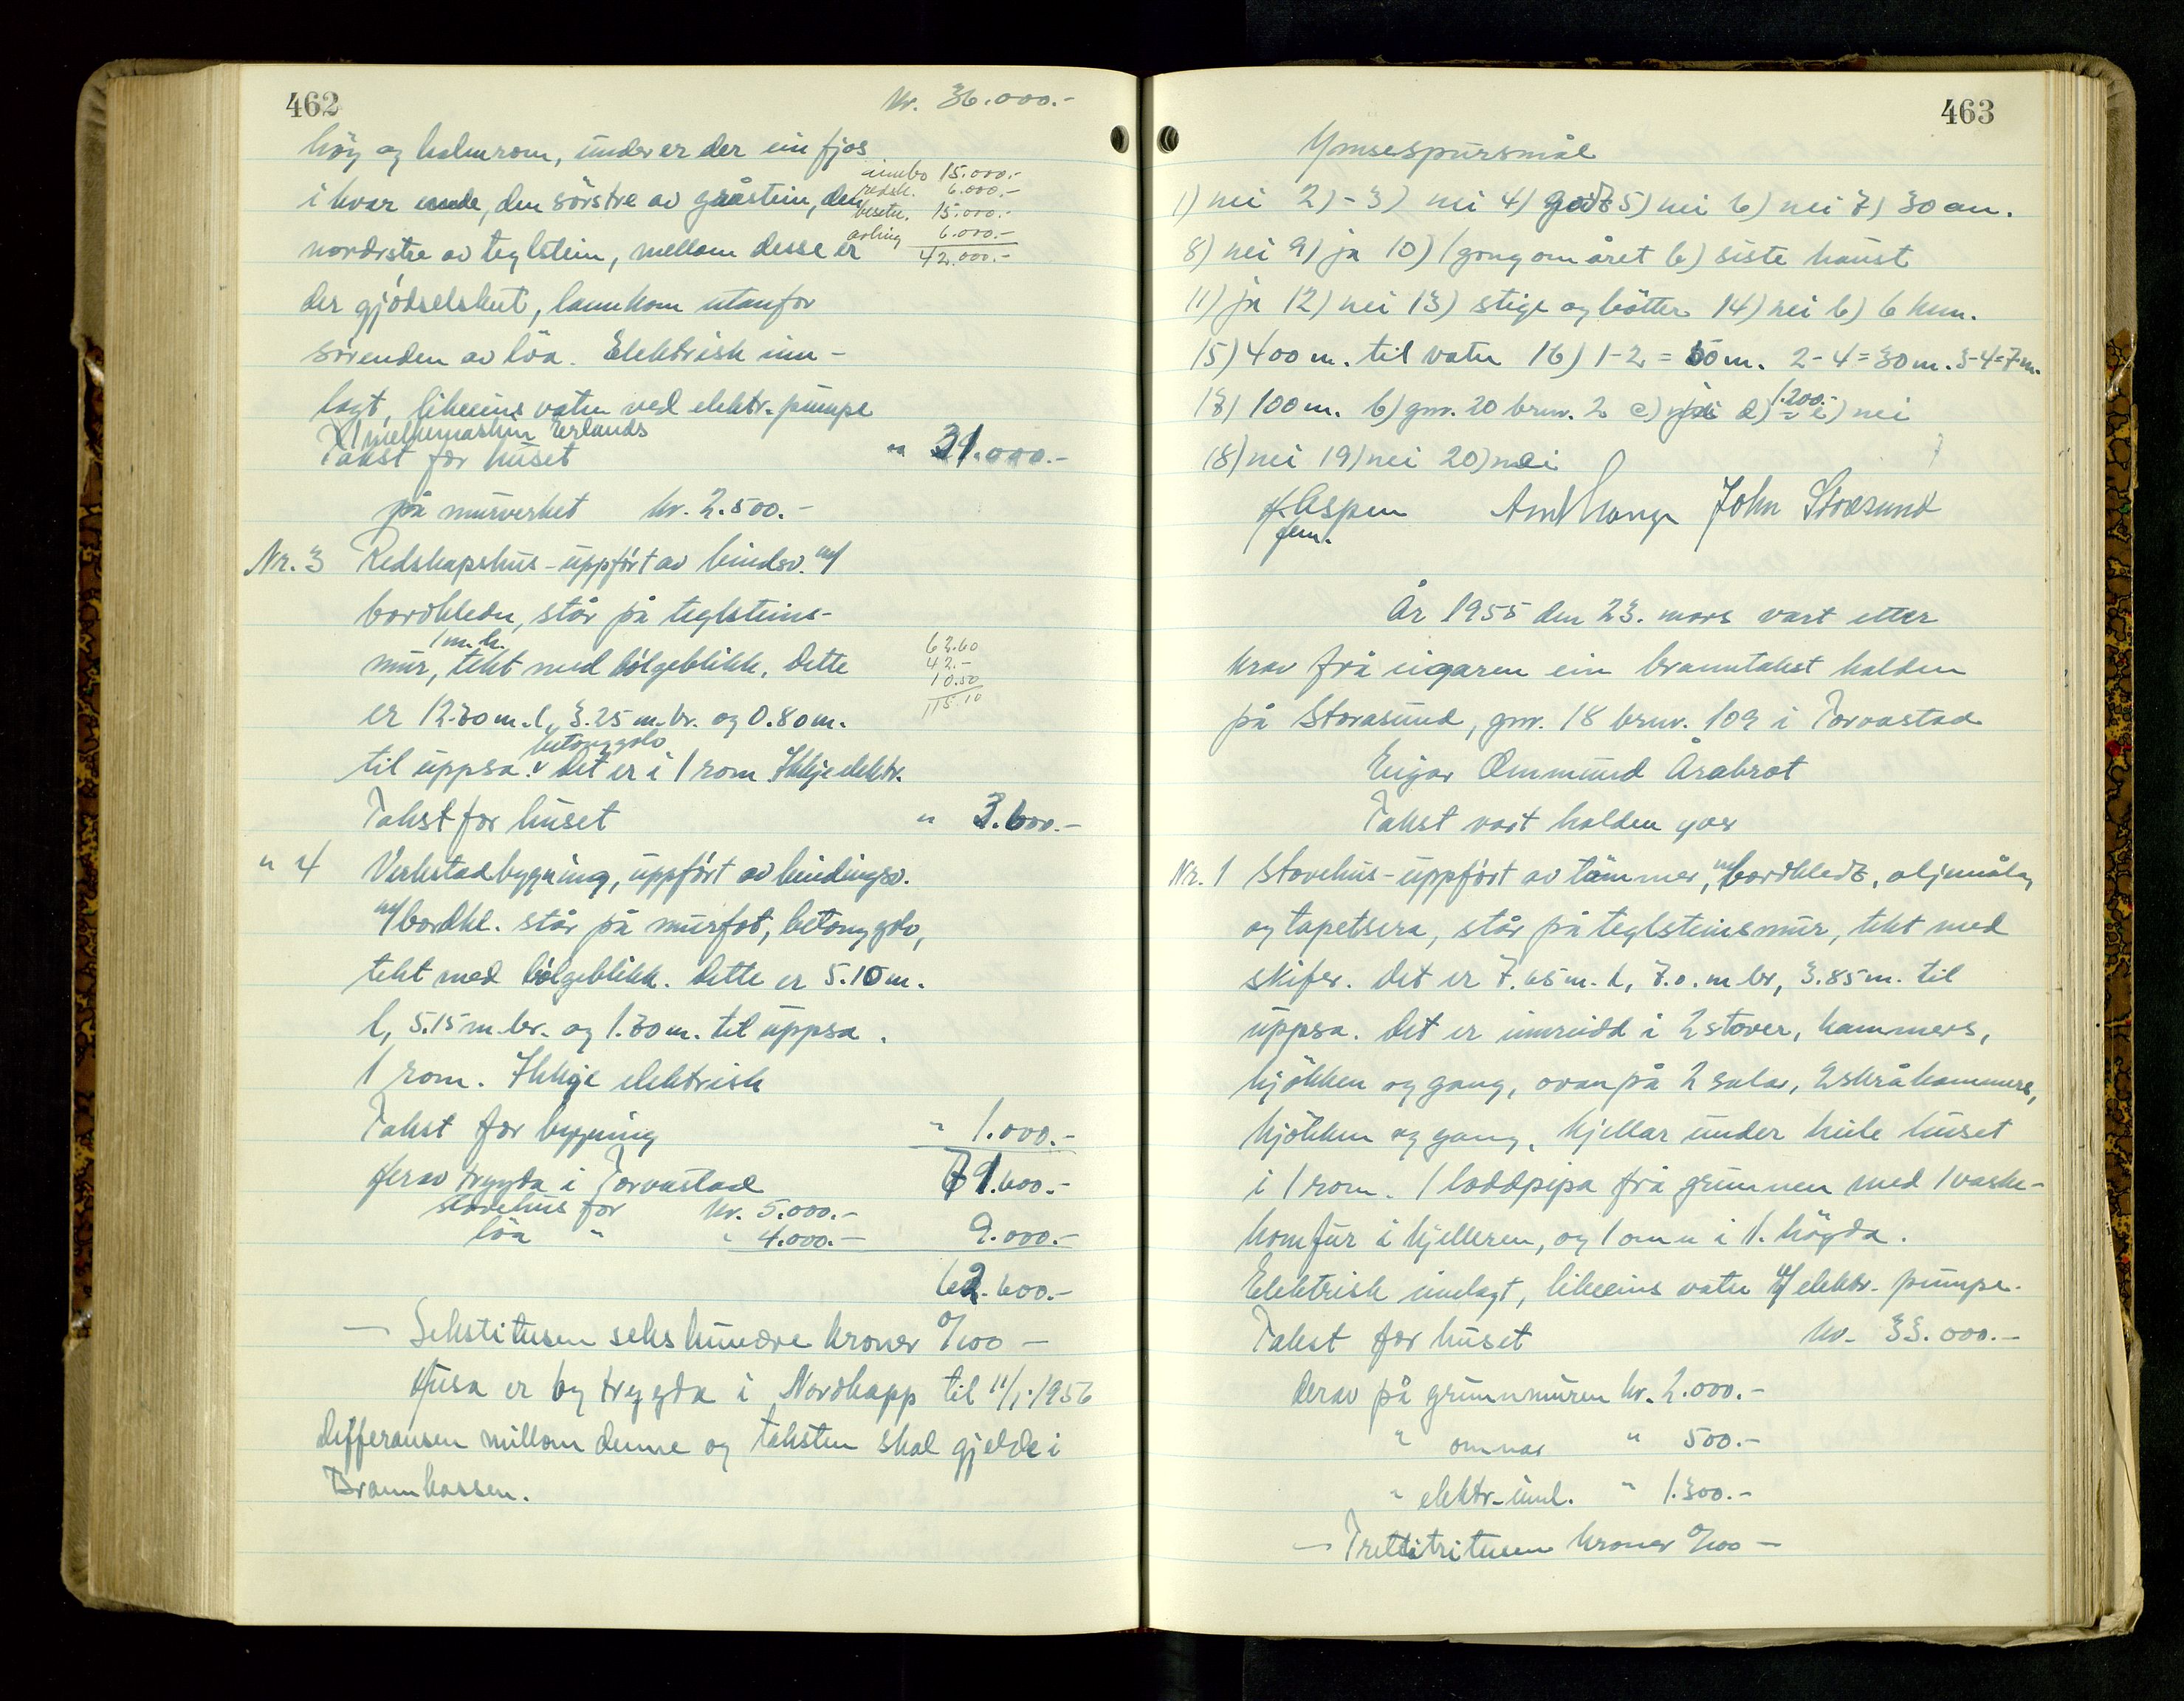 462
kr. 36.000.-
höy og halmrom, under er der ein fjos
innbo 15.000.-
redsk. 6.000.-
besetn. 15.000.-
avling 6.000.-
42.000.-
i kvar ende, den sörstre av gråstein, den
nordrstre av teglstein, mellom desse er
der gjödselskut, lannkom utanfor
sörenden av löa. Elektrisk inn-
lagt, likeeins vatn ved elektr. pumpe
1 melkemaskin Erlands
Takst for huset " 31.000.-
på murverket kr. 2.500.-
Nr. 3 Redskapshus - uppfört av bindv. m/
bordkledn, står på teglsteins-
1 m. h.
mur, tekt med bölgeblikk. Dette
62.60
42.-
10.50
115.10
er 12.70 m. l, 3.25 m. br. og 0.80 m.
betonggolv
til uppsa. Det er i 1 rom Ikkje elektr.
Takst for huset " 3.600.-
" 4 Verkstadbygning, uppfört av bindingsv.
m/bordkl. står på murfot, betonggolv,
tekt med bölgeblikk. Dette er 5.10 m.
l, 5.15 m. br. og 1.70 m. til uppsa.
1 rom. Ikkje elektrisk
Takst for bygning " 1.000.-
Herav trygda i Torvastad 71.600.-
stovehus for kr. 5.000.-
löa " " 4.000.- 9.000.-
62.600.-
- Sekstitusen sekshundre kroner 0/100 -
Husa er og trygda i Nordkapp til 11/1.1956
differansen millom denne og taksten skal gjelde i
Brannkassen.
463
Ymsespursmål
1) nei 2) - 3) nei 4) godt 5) nei 6) nei 7) 30 am.
8) nei 9) ja 10) 1 gong om året b) siste haust
11) ja 12) nei 13) stige og bötter 14) nei b) 6 km.
15) 400 m. til vatn 16) 1-2 = 50 m. 2-4 = 30 m. 3-4 = 7 m.
17) 100 m. b) gnr. 20 bnr. 2 c) nei d) 1.200.- e) nei
18) nei 19) nei 20) nei
H. Aspen John Storesund
fem.
År 1955 den 23. mars vart etter
krav frå eigaren ein branntakst halden
på Storasund, gnr. 18 bnr. 109 i Torvastad
Eigar Ommund Årabrot
Takst vart halden yver
Nr. 1 Stovehus - uppfört av tömmer, m/bordkledt, oljemåla,
og tapetsera, står på teglsteinsmur, tekt med
skifer. Det er 7.65 m. l, 7.0. m br, 3.85 m. til
uppsa. Det er innreidd i 2 stover, kammers,
kjökken og gang, ovanpå 2 salar, 2 skråkammers,
kjökken og gang, kjellar under heile huset
i 1 rom. 1 loddpipa frå grunnen med 1 vaske-
komfur i kjelleren, og 1 omn i 1. högda.
Elektrisk innlagt, likeeins vatn m/ elektr. pumpe.
Takst for huset kr. 33.000.-
Derav på grunnmuren kr. 2.000.-
" omnar " 500.-
" elektr. innl. " 1.300.-
- Trettitritusen kroner 0/100 -